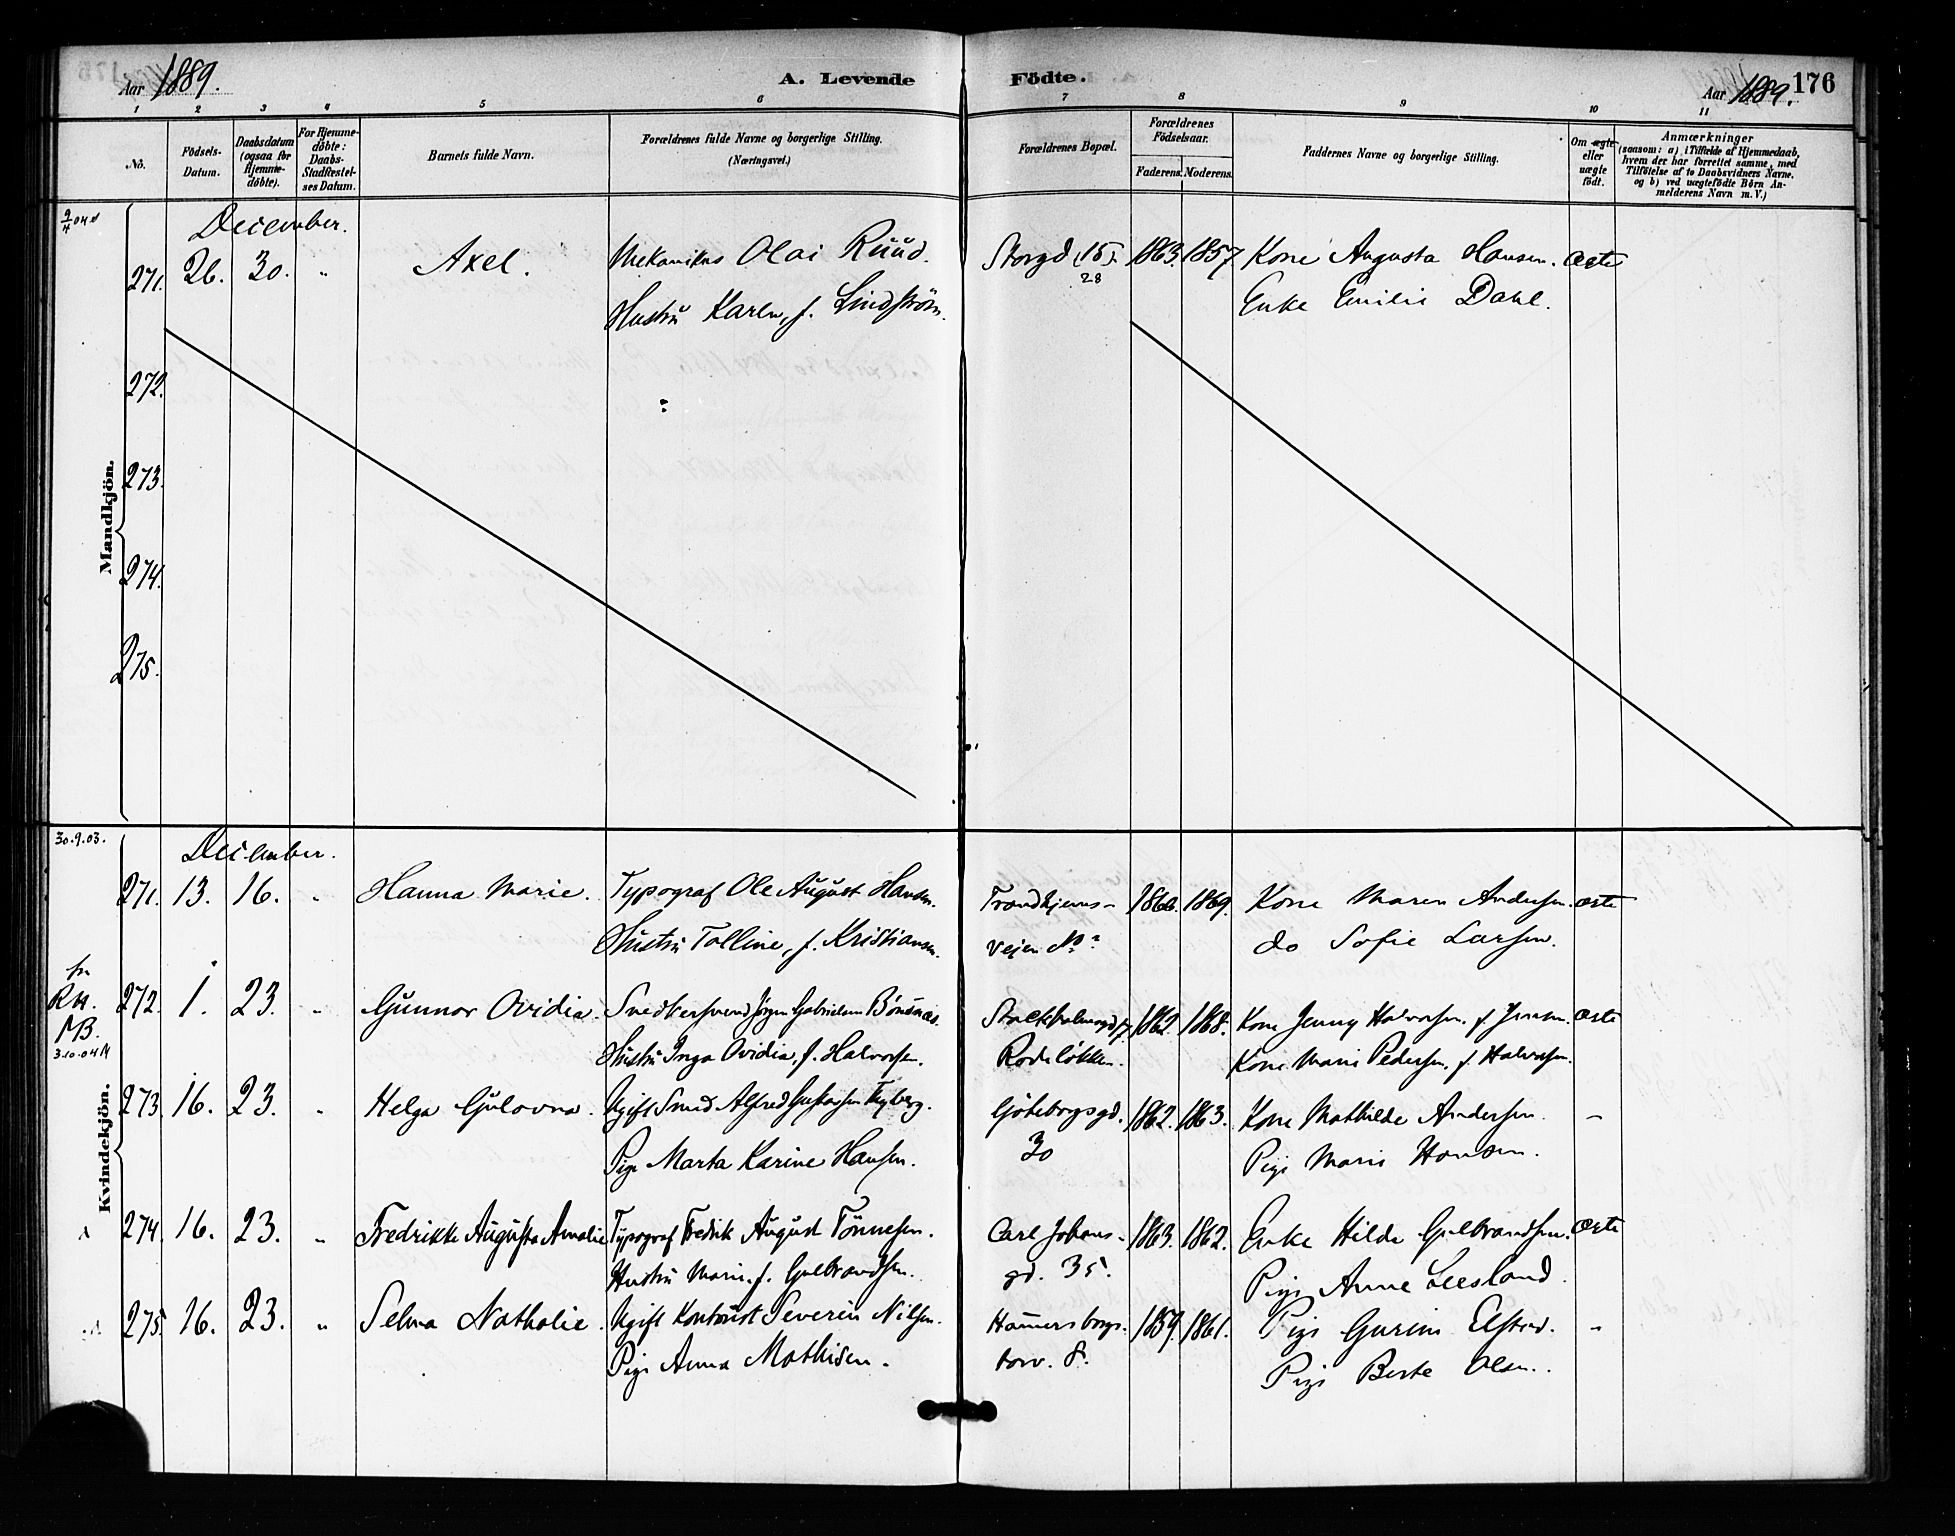 Aar 1889. A. Levende Födte. Aar 1889. 176
1 2 3 4 5 6 7 8 9 10 11
No. Födsels-Datum. Daabsdatum (ogsaa for Hjemme-döbte). For Hjemme-döbte: Daabs-Stadfæstel-ses Datum. Barnets fulde Navn. Forældrenes fulde Navne og borgerlige Stilling. (Næringsvei.) Forældrenes Bopæl. Forældrenes Födselsaar. Faderens. Moderens. Faddernes Navne og borgerlige Stilling. Om ægte eller uægte födt. Anmærkninger (saasom: a) i Tilfælde af Hjemmedaab, hvem der har forrettet samme, med Tilföielse af to Daabsvidners Navne, og b) ved uægtefödte Börn An-melderens Navn m. V.)
Mandkjön.
December.
271. 26. 30. " Axel. Mekanikus Olai Ruud. Storgd (15). 1863. 1857 Kone Augusta Hansen. ægte
Hustru Karen, f. Lindström. 28 Enke Emilie Dahl.
272.
273.
274.
275.
Kvindekjön.
30.9.03.
December.
271. 13. 16. " Hanna Marie. Typograf Ole August Hansen. Trondhjems- 1869. Kone Maren Andersen. ægte
Hustru Tolline, f. Kristiansen. Veien No. do Sofie Larsen.
272. 1. 23. " Gunnor Ovidia. Snedkersvend Jörgen Gabrielsen 1862. 1868. Kone Jenny Halvorsen, f. Jensen. ægte
MB. 3.10.04 Hustru Inga Ovidia, f. Halvorsen. Rodeløkken. Kone Marie Pedersen, f. Halvorsen.
273. 16. 23. " Helga Gulovna. Ugift Smed Alfred Gustavsen Göteborgsgd. 1862. 1863. Kone Mathilde Andersen. -
Pige Marta Karine Hansen. 30 Pige Marie Hansen.
274. 16. 23. " Fredrikke Augusta Amalie Typograf Fredrik August Tönnesen. Carl Johans- 1863. 1862. Enke Hilda Gulbrandsen. ægte
Hustru Marie, f. Gulbrandsen. gd. 35. Pige Anne
275. 16. 23. " Selma Nathalie. Ugift Kontorist Severin Nilsen. Hamersborgs- 1859. 1861. Pige -
Pige Anna Mathisen. torv. 8. Pige Berte Olsen.